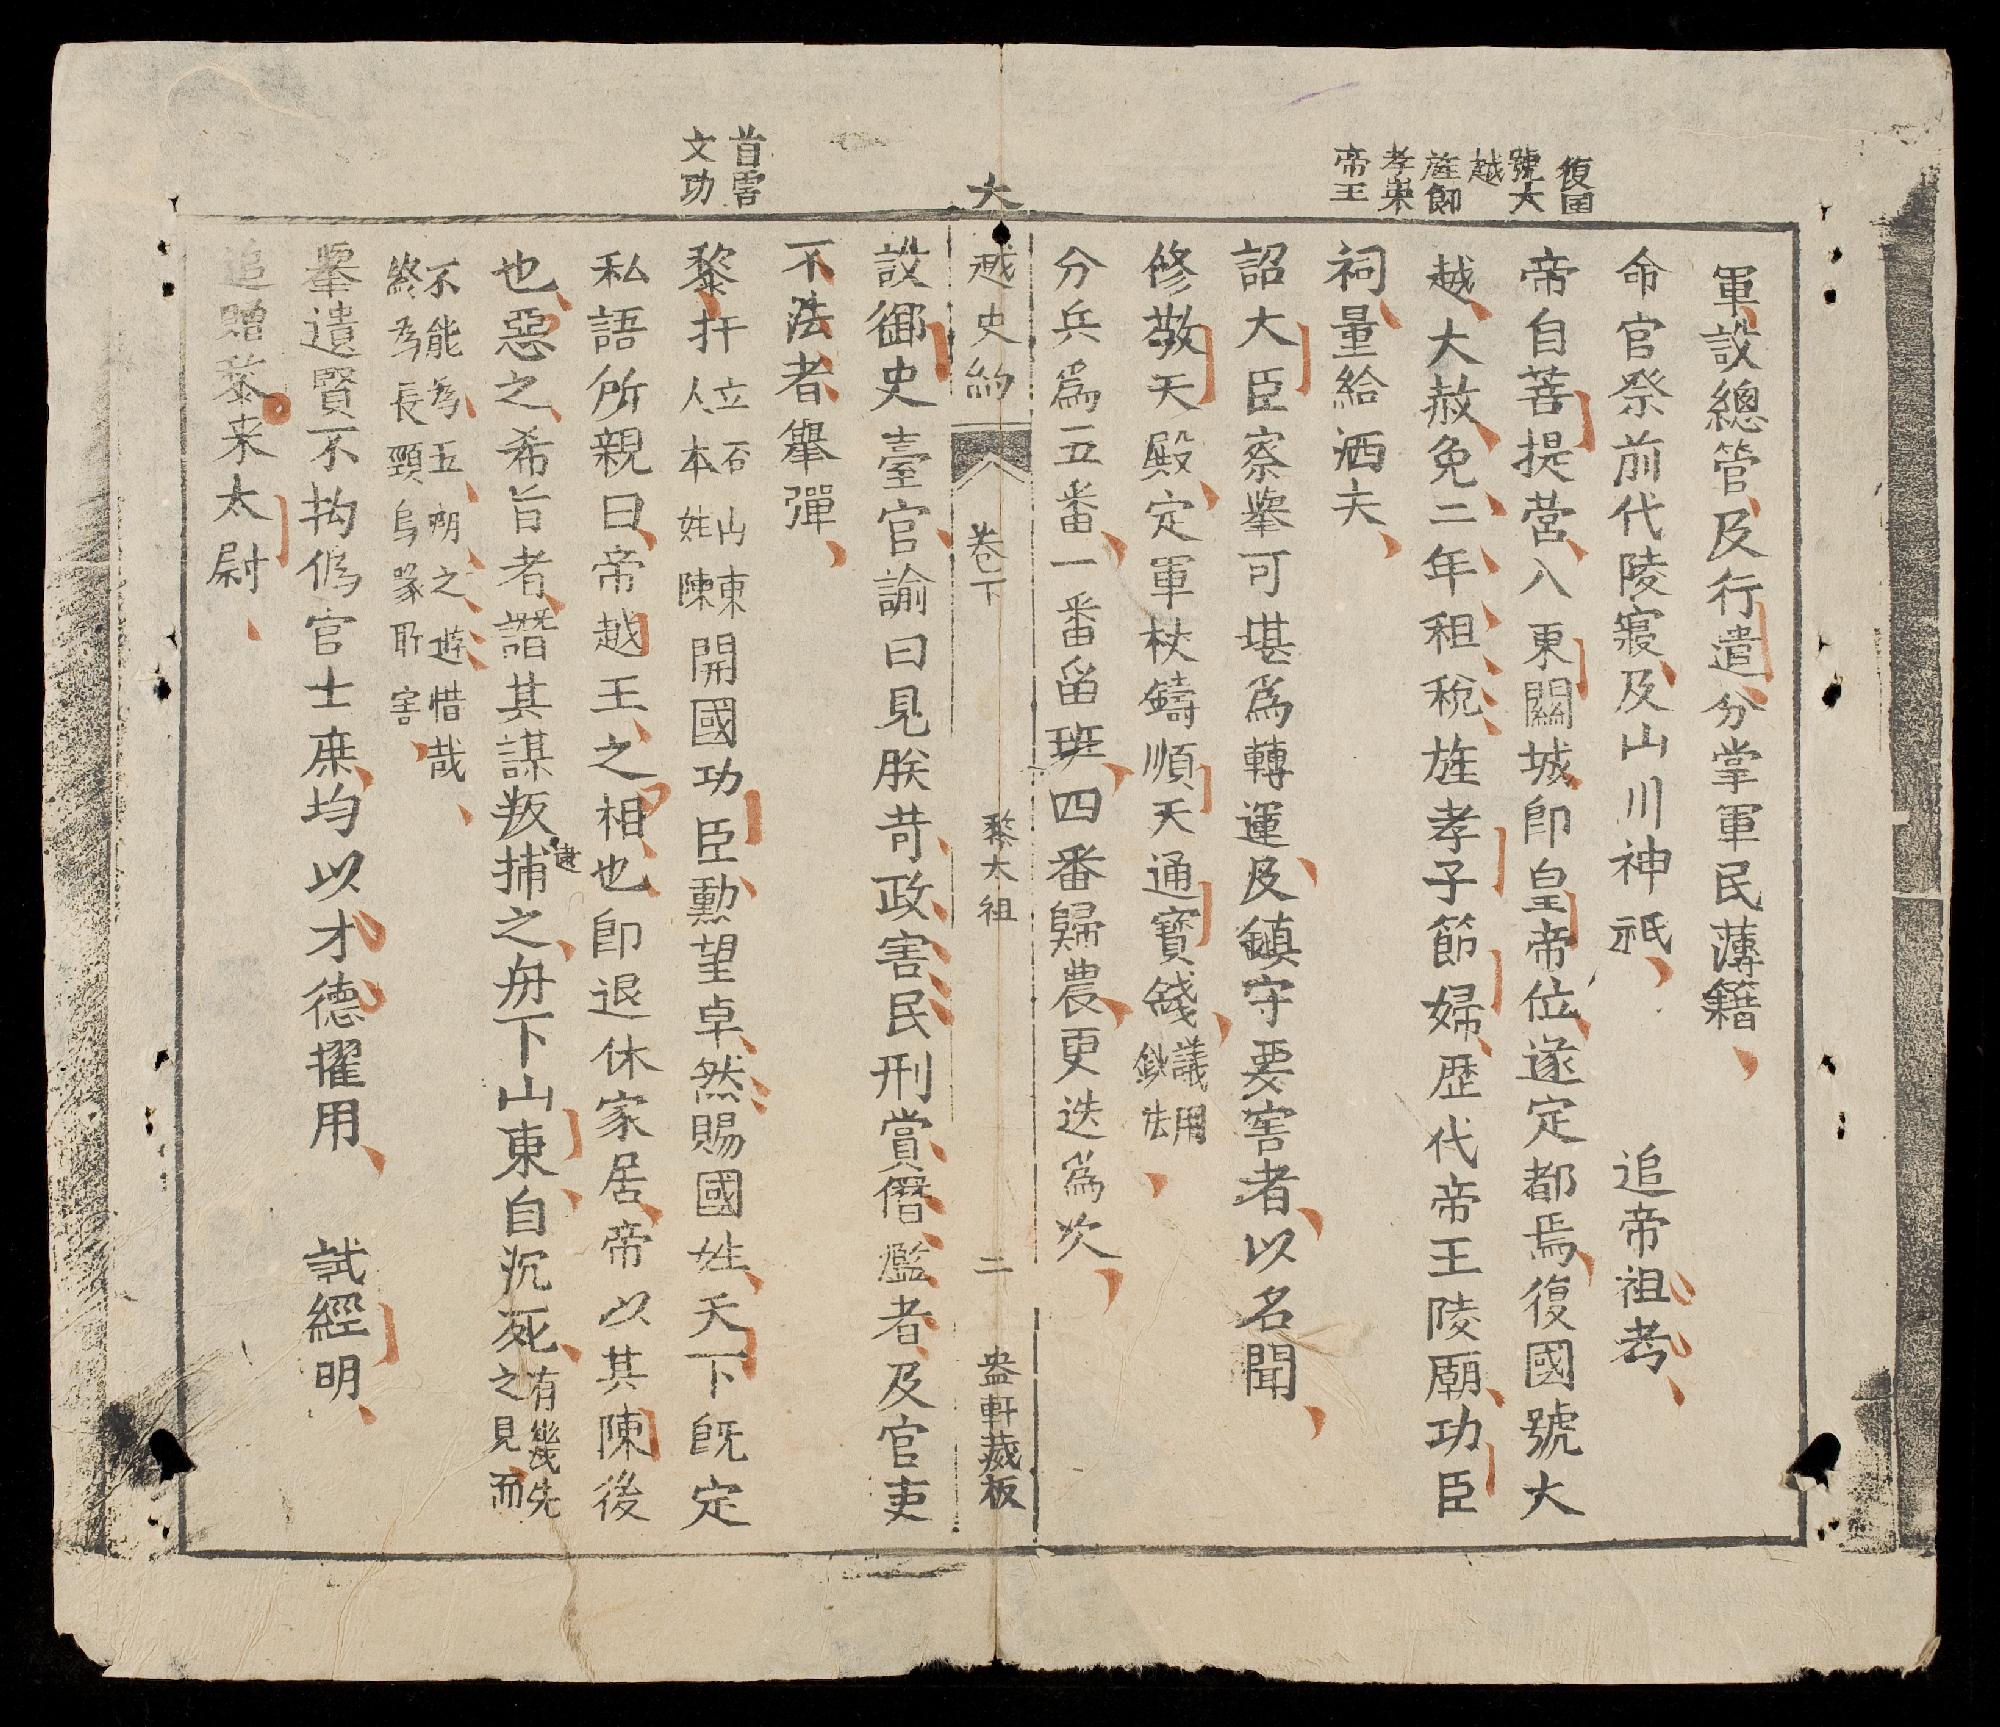 復国
號大
越
旌節
孝崇
帝王
軍設總管及行遣分掌軍民薄籍
命官祭前代陵寢及山川神祇　追帝祖考
帝自菩提营入東關城即皇帝位遂定都焉復國號大
越大赦免二年租稅旌孝子節婦歷代帝王陵廟功臣
祠量給洒夫
詔大臣察舉可堪爲轉運及鎮守要害者以名聞
修敬天殿定軍杖鑄順天通寶錢議用
鈔法
分兵爲五番一番留班四番歸農更迭爲次
大
越史約　卷下　黎太祖　二　盎軒藏板
首雪
文功
設御史臺官諭曰見朕苛政害民刑賞僭濫者及官吏
不法者舉彈
黎扞立石山東
人本姓陳開國功臣勳望卓然賜國姓天下既定
私語所親曰帝越王之相也即退休家居帝以其陳後
也惡之希旨者譖其謀叛逮捕之舟下山東自沉死有幾先
之見而
不能為五湖之遊惜哉
終為長頸烏喙所害
舉遺賢不拘僞官士庶均以才德擢用　試經明
追贈黎来太尉